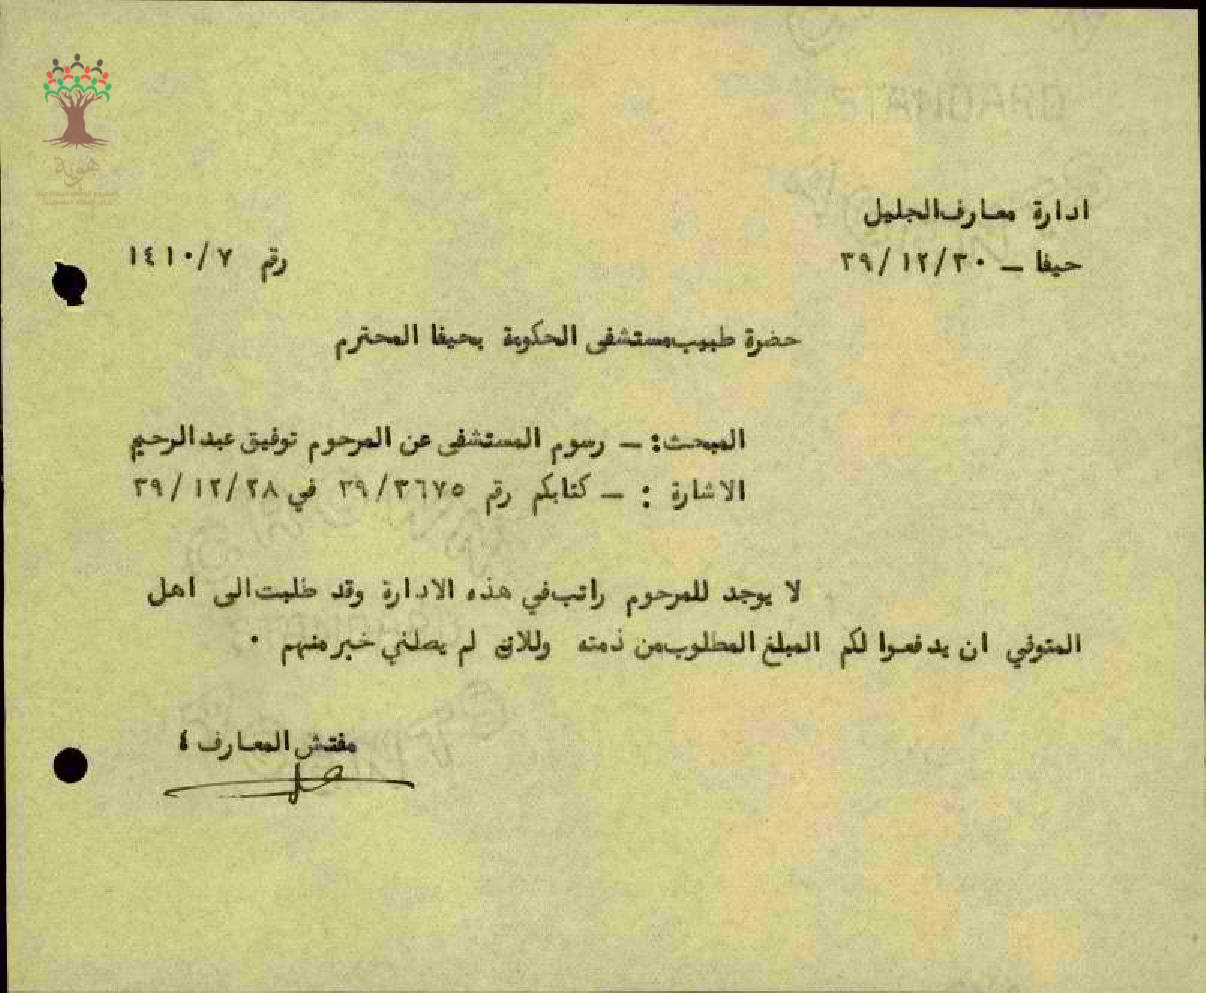 هوية
ادارة معارف الجليل
حيفا — ٣٩/١٢/٣٠
رقم ١٤١٠/٧
حضرة طبيب مستشفى الحكومة بحيفا المحترم
المبحث: — رسوم المستشفى عن المرحوم توفيق عبد الرحيم
الاشارة : — كتابكم رقم ٣٩/٣٦٧٥ في ٣٩/١٢/٢٨
لا يوجد للمرحوم راتب في هذه الادارة وقد طلبت الى اهل
المتوفي ان يدفعوا لكم المبلغ المطلوب من ذمته وللان لم يصلني خبر منهم ٠
مفتش المعارف ٤